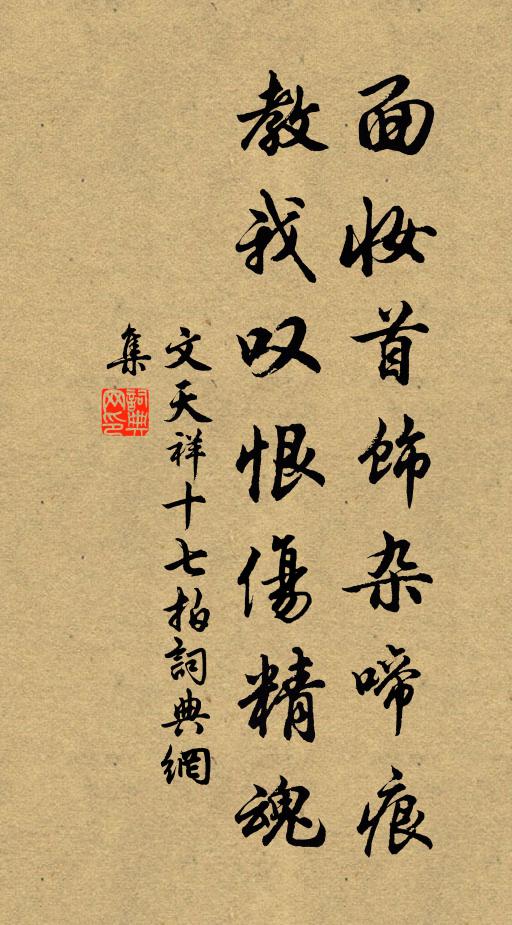 面妆首饰杂啼痕
教我叹恨傷精魂
文天祥十七拍詞典網
集
詞典網印